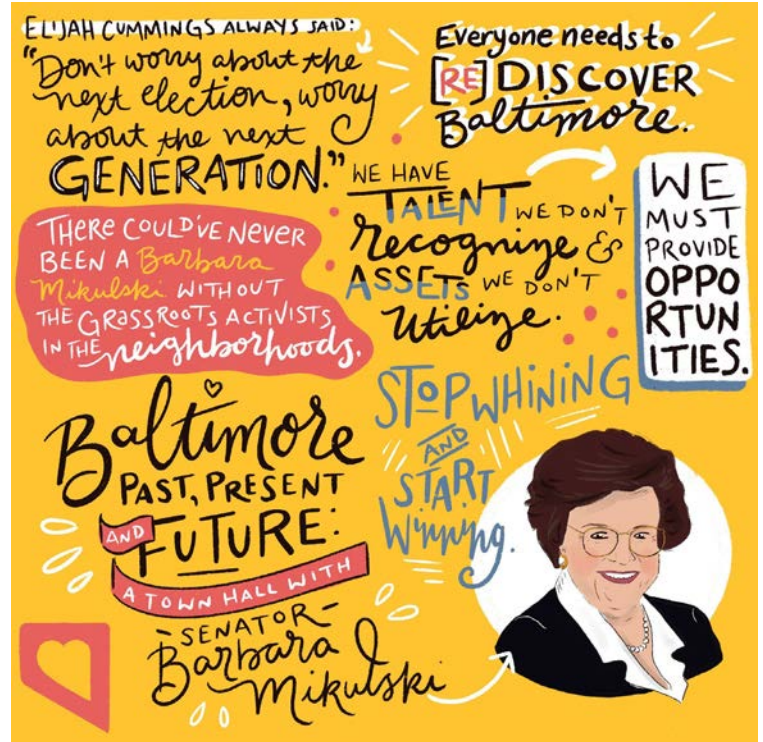 ELIJAH CUMMINGS ALWAYS SAID:
"Don't worry about the
next election, worry
about the next
GENERATION."
Everyone needs to
[RE]DISCOVER
Baltimore.
WE HAVE
TALENT WE DON'T
recognize &
ASSETS WE DON'T
utilize.
WE
MUST
PROVIDE
OPPO
RTUN
ITIES.
THERE COULD'VE NEVER
BEEN A Barbara
Mikulski WITHOUT
THE GRASSROOTS ACTIVISTS
IN THE neighborhoods.
STOP WHINING
AND
START
Winning.
Baltimore
PAST, PRESENT
AND
FUTURE:
A TOWN HALL WITH
-SENATOR-
Barbara
Mikulski